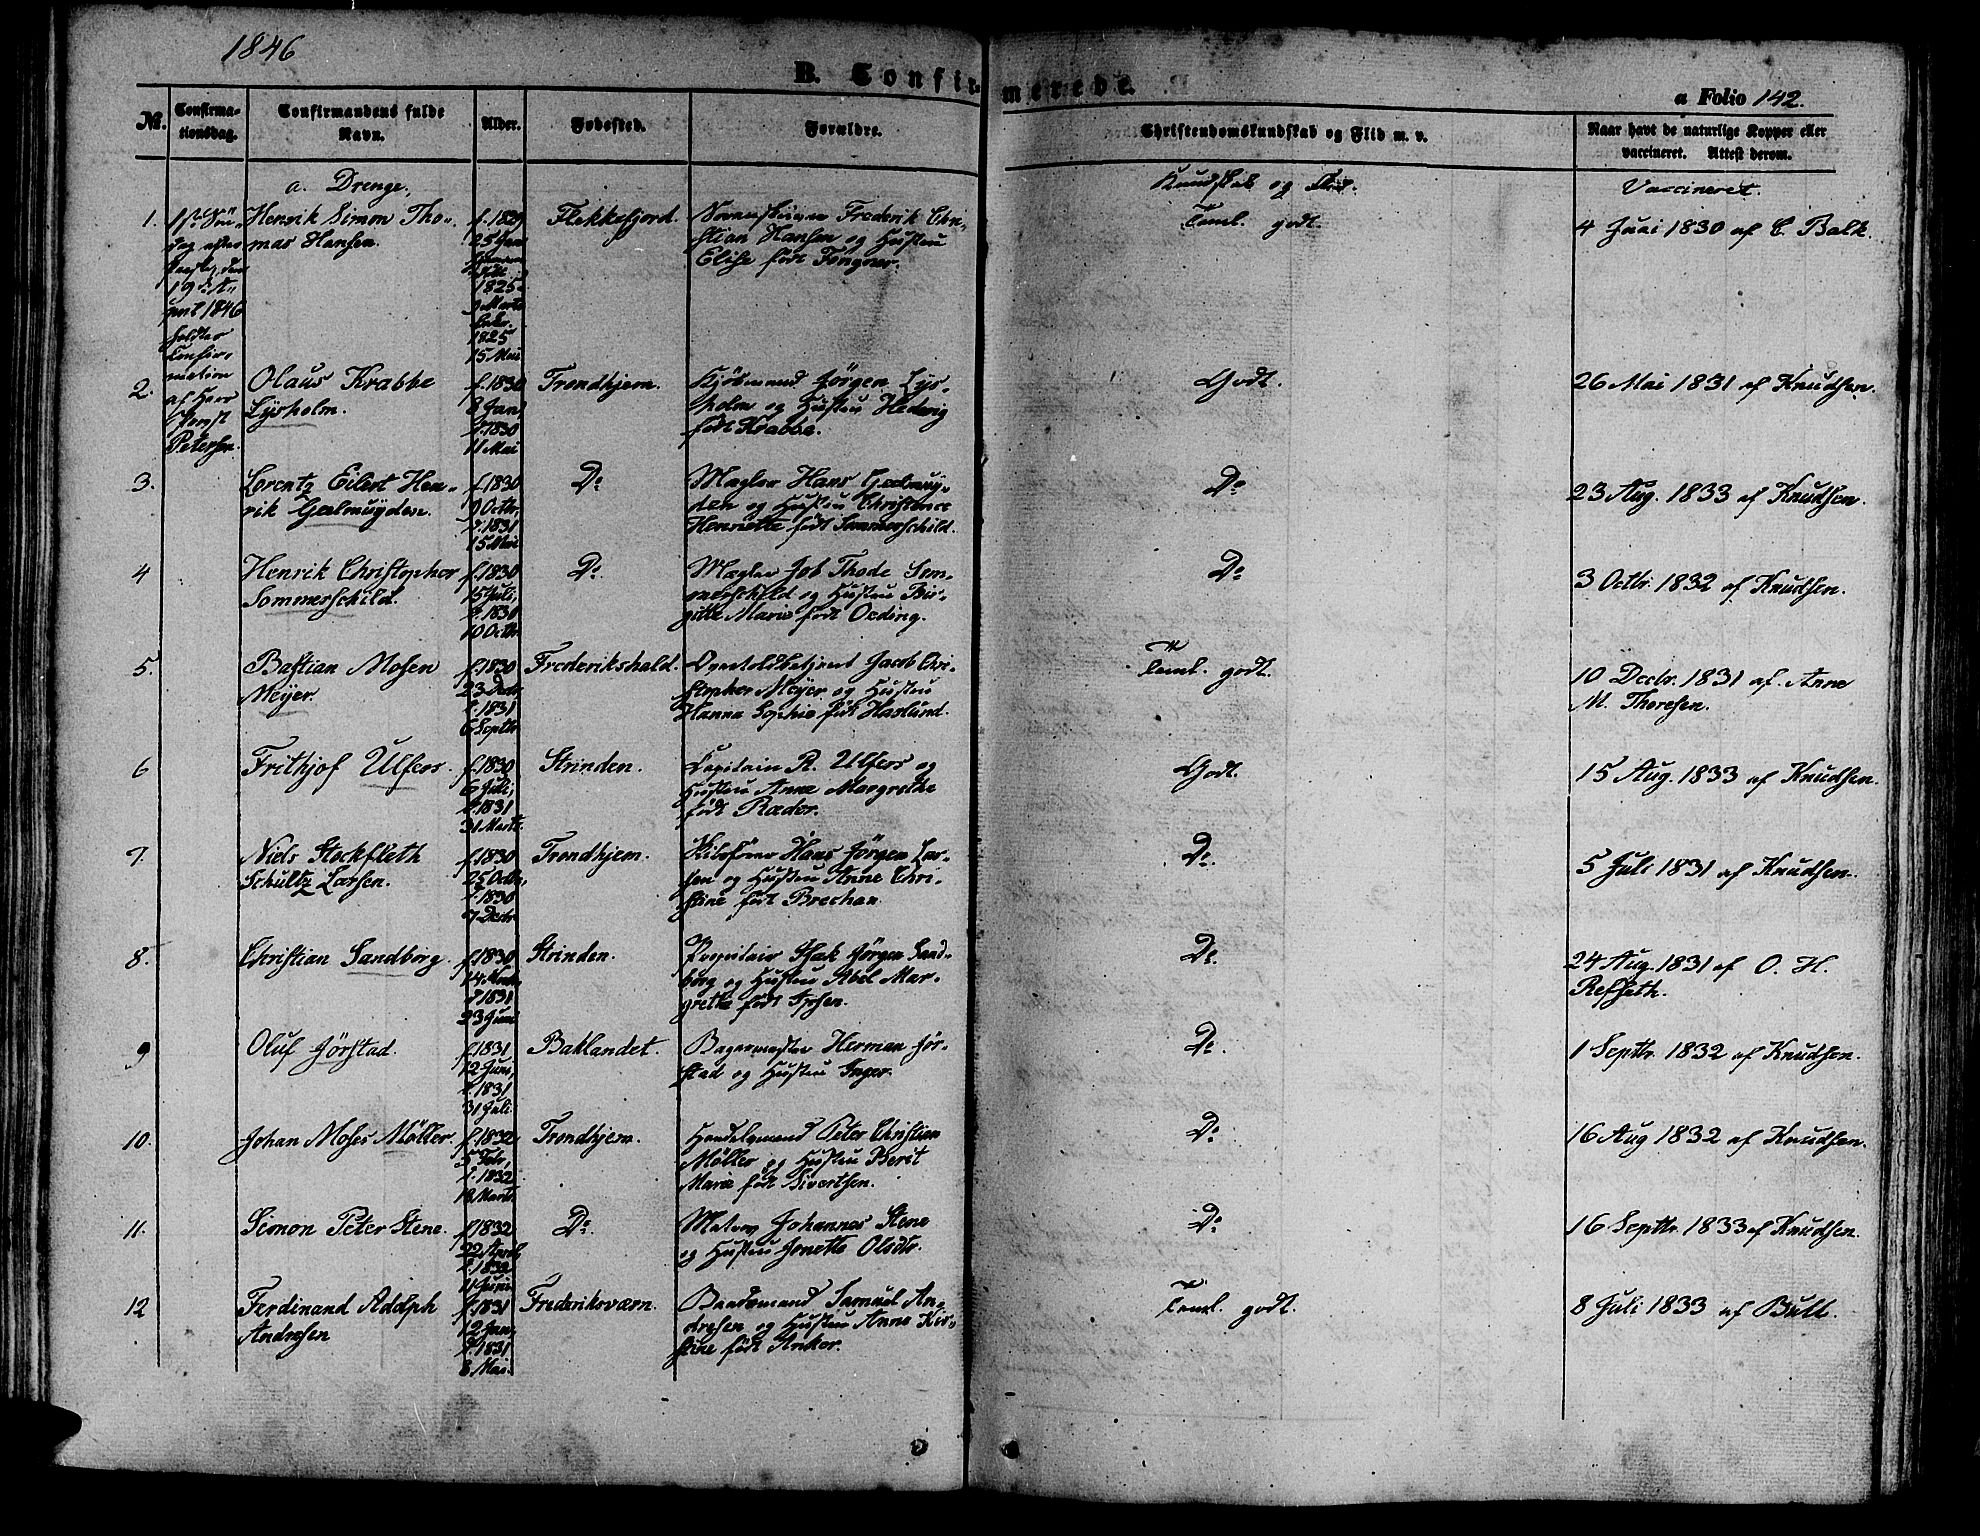 1846
B. Confirmerede.
a Folio 142.
No.
Confirma-
tionsdag.
Confirmandens fulde
Navn.
Alder.
Fødested.
Forældre.
Christendomskundskab og Flid m. v.
Naar havt de naturlige Kopper eller
vaccineret. Attest derom.
a. Drenge.
Kundskab og Flid.
Vaccineret.
1ste Søn-
dag efter
Paaske, den
19de A-
pril 1846
holdtes
Confir-
mation
af Herr
Provst
Petersen.
1.
Henrik Simon Tho-
mas Hansen.
f. 1829
25 Jan
1825
9 Marts
1825
15 Mai
Flekkefjord.
Frederik Chri-
stian Hansen og Hustru
Elise født Tongner.
Teml. godt.
4 Juni 1830 af C. Balk.
2.
Olaus Krabbe
Lysholm.
f. 1830
8 Jan,
d. 1830
11 Mai
Trondhjem.
Kjøbmand Jørgen Lys-
holm og Hustru Hedevig
født Krabbe.
Godt.
26 Mai 1831 af Knudsen.
3.
Lorentz Eilert Hen-
rik Geelmuyden.
f. 1830
9 Octbr.
d. 1831
15 Mai
Do
Mægler Hans Geelmuy-
den og Hustru Christence
Henriette født Sommerschild.
Do
23 Aug. 1833 af Knudsen.
4
Henrik Christopher
Sommerschild.
f. 1830
15 Juli,
d. 1831
10 Octbr
Do
Mægler Job Thode Som-
merschild og Hustru Bir-
gitte Marie født Oeding.
Do
3 Octbr. 1832 af Knudsen.
5.
Bastian Mosen
Meyer.
f. 1830
23 Decbr
d. 1831
6 Septbr
Frederikshald.
Overtoldbetjent Jacob Chri-
stopher Meyer og Hustru
Hanna Sophie født Haslund.
Teml. godt.
10 Decbr. 1831 af Anne
M. Thoresen.
6
Frithjof Ulfers.
f. 1830
6 Juli,
d. 1831
31 Marts.
Strinden.
Capitain R. Ulfers og
Hustru Anne Margrethe
født Ræder.
Godt.
15 Aug. 1833 af Knudsen.
7.
Niels Stockfleth
Schultz Larsen.
f. 1830
25 Octbr,
d. 1830
7 Decbr
Trondhjem.
Hans Jørgen Lar-
sen og Hustru Anne Chri-
stine født Brechan.
Do.
5 Juli 1831 af Knudsen.
8.
Christian Sandborg.
f. 1830
14 Novbr,
d. 1831
23 Juni
Strinden.
Isak Jørgen Sand-
borg og Hustru Abel Mar-
grethe født Ipsen.
Do.
24 Aug. 1831 af O. H.
Refseth.
9
Oluf Jørstad.
f. 1831
12 Juni,
d. 1831
31 Juli.
Baklandet.
Bagermester Herman Jør-
stad og Hustru Inger.
Do.
1 Septbr. 1832 af Knudsen.
10.
Johan Moses Møller.
f. 1832
5 Febr,
d. 1832
18 Marts
Trondhjem.
Handelsmand Peter Christian
Møller og Hustru Berit
Marie født Sivertsen.
Do
16 Aug 1832 af Knudsen.
11.
Simon Peter Stene.
f. 1832
22 April
d. 1832
11 Juni
Do.
Johannes Stene
og Hustru Jonette Olsdtr.
Do
16 Septbr. 1833 af Knudsen.
12
Ferdinand Adolph
Andresen
f. 1831
12 Jan,
d. 1831
8 Mai.
Frederiksværn.
Baadsmand Samuel An-
dresen og Hustru Anne Kir-
stine født Anker.
Teml. godt.
8 Juli 1833 af Bull.